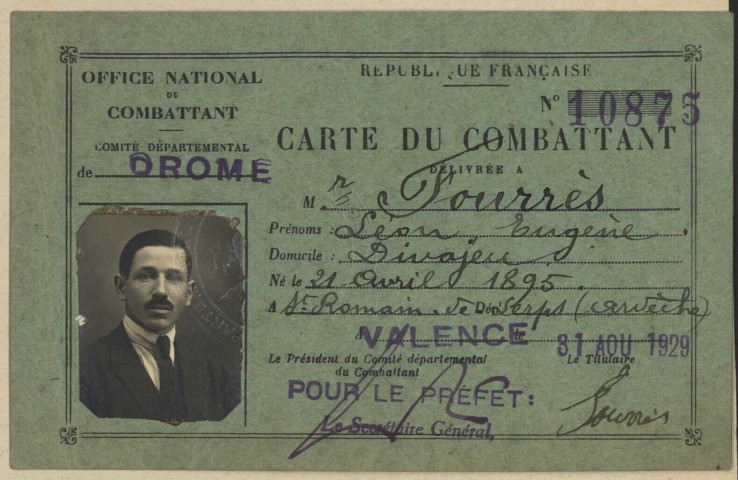 OFFICE NATIONAL
DU
COMBATTANT
COMITÉ DÉPARTEMENTAL
de DROME
REPUBLIQUE FRANÇAISE
N° 10875
CARTE DU COMBATTANT
DÉLIVRÉE A
Mr Fourrès
Prénoms : Léon, Eugène
Domicile : Divajeu
Né le 21 Avril 1895
A St Romain de Dép. Lerps (Ardèche)
A VALENCE le 31 AOU 1929
Le Président du Comité départemental
du Combattant
Le Titulaire
POUR LE PRÉFET:
Le Secrétaire Général,
Fourrès